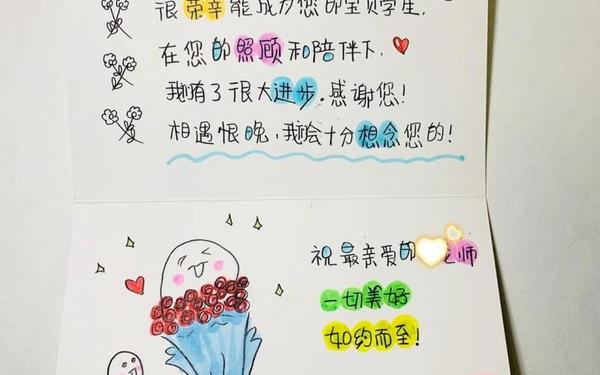 很荣幸能成为您的宝贝学生,
在您的照顾和陪伴下,
我有了很大进步。感谢您!
相遇恨晚,我会十分想念您的!
祝最亲爱的老师
一切美好
如约而至!